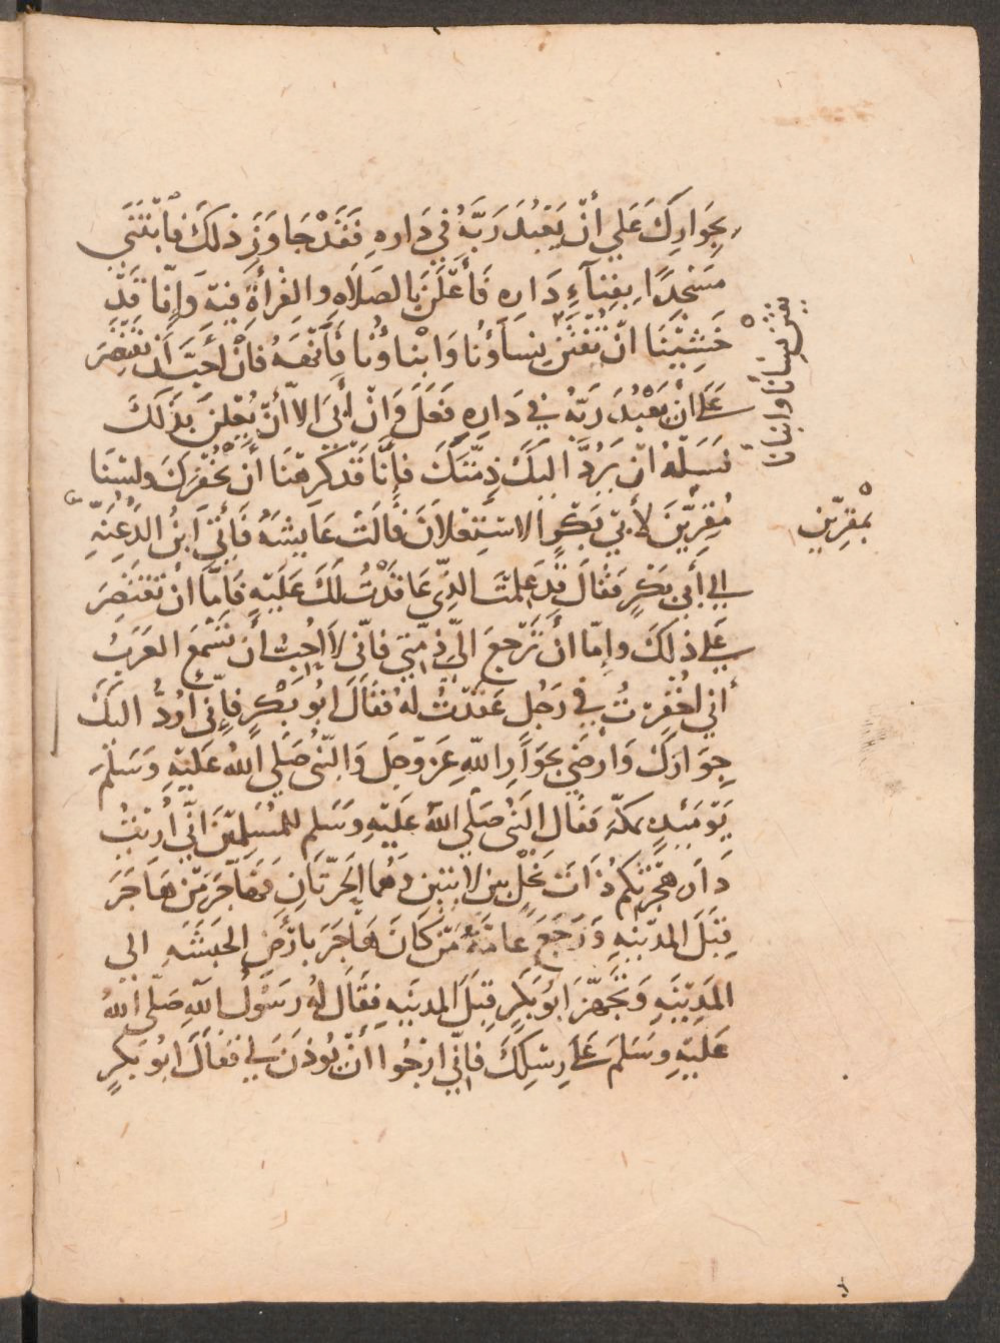 بِجِوَارِكَ عَلَي أَنْ يَعْبُدَ رَبَّهُ فِي دَارِهِ فَقَدْ جَاوَزَ ذلكَ فَابْتَنَي
مَسْجِدًا بِفِنَآءِ دَارِهِ فَأَعْلَنَ بِالصَلاَهِ والقِرأَةِ فِيهِ وَإِنَّا قَدْ
خَشِيْنَا انْ تُفْتَنَ نِسآؤُنا وَابْناؤُنا فَآنْهَهُ فَاِنْ أَحَبَّ أَنْ يَقْتَصِرَ
عَلَى أَنْ يَعْبُدَ رَبَّهُ في دَارِهِ فَعَلَ وَانْ أَبَى الاّ أَنْ يُعْلِنَ بذَلكَ
فَسَلْهُ انْ يَرُدَّ اليكَ ذِمَّتَكَ فَإِنَّا قَدْ كَرِهْنَا أَنْ نُخْفِرَكَ ولسْنَا
مُقِرِّيْنَ لأَبي بَكْرٍ الاسْتِعْلاَنَ قالَتْ عَايِشَهُ فَأَتَى ابنُ الدَّغِنَهِ
الي أَبي بَكْرٍ فَقَالَ قَدْ عَلِمْتَ الذِّي عَاقَدْتُ لَكَ عَلَيْهِ فَامَّا أَنْ تَقْتَصِرَ
عَلي ذلِكَ وإِمّا أَنْ تَرْجعَ اليَّ ذِمَّتِي فانّي لاَ اُحِبُّ أَنْ تَسْمَعَ العَرَبُ
أَني اُخْفِرْتُ في رَجُلٍ عَقَدْتُ لهُ فَقَالَ ابُو بَكْرٍ فإِنّي اَرُدُّ اليكَ
جِوَارَكَ وَارضَي بجِوَارِ اللهِ عَزوجَلَ وَالنّبيُ صَلي اللهُ عَليْهِ وَسَلمَ
يَوْمَئِذٍ بمكةَ فقَالَ النَبيُ صَلي اللهُ عَليْهِ وسَلم للمُسْلِمِيْنَ انّي أُرِيْتُ
دَارَ هِجْرَتِكُم ذَاتَ نَخْلٍ بينَ لابتينِ وَهُما الحَرّتَانِ فهَاجَرَ مَنْ هَاجَرَ
قِبَلَ المدِيْنهِ وَرَجَعَ عامَّةُ مَنْ كَانَ هَاجَرَ بارْضِ الحَبَشَهِ الي
المَدِيْنَهِ وَتَجَهّزَ ابُو بَكرٍ قِبَلَ المدينَهِ فقَال لهُ رَسُولُ اللهِ صَلى اللهُ
عَليْهِ وسَلمَ عَلَى رِسْلِكَ فإِنّي ارْجُوا أَنْ يُوذنَ لي فقَالَ ابُو بَكْرٍ
يفتن نِسأنا وابنانا
بمقرّين